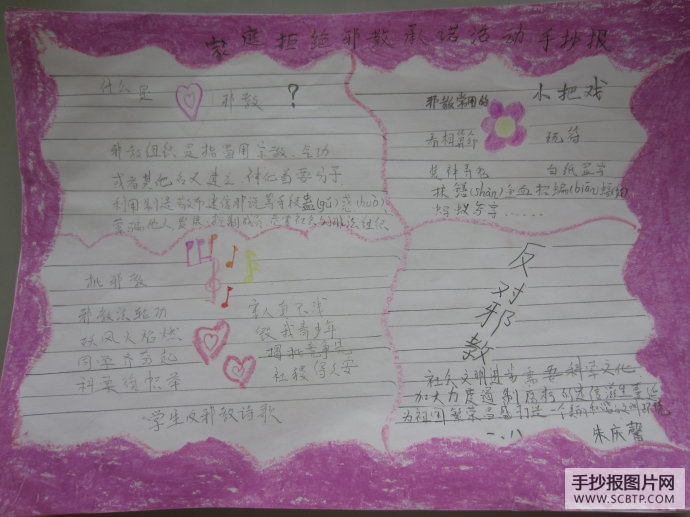 家庭拒绝邪教承诺活动手抄报
什么是 邪教 ?
邪教组织是指冒用宗教、气功
或者其他名义建立、神化首要分子
利用制造散布迷信邪说等手段蛊(gǔ)惑(huò)
蒙骗他人发展、控制成员、危害社会的非法组织
邪教常用的 小把戏
看相算命 玩符
焚牌弄龙 白纸显字
扶鸾 蝙(biān)蝠
蚂蚁务字……
批邪教
邪教法轮功 害人真不浅
妖风火焰燃 毁我青少年
同学齐奋起
科学缴帜举 社稷
学生反邪教诗歌
反对邪教
社会文明进步需要科学文化
加大力度遏制反科的迷信滋生蔓延
为祖国繁荣昌盛打造一个和谐的文明环境
一.八 朱庆馨
手抄报图片网
WWW.SCBTP.COM